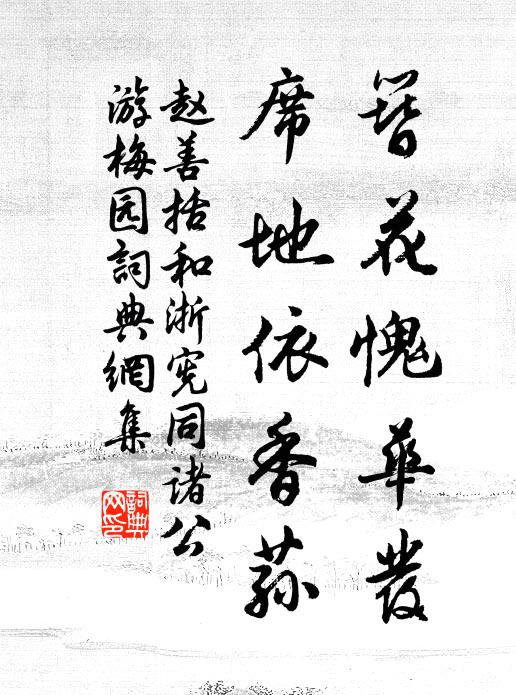 簪花愧華发
席地依香荪
赵善括和浙宪同诸公
游梅园词典網集
詞典網印